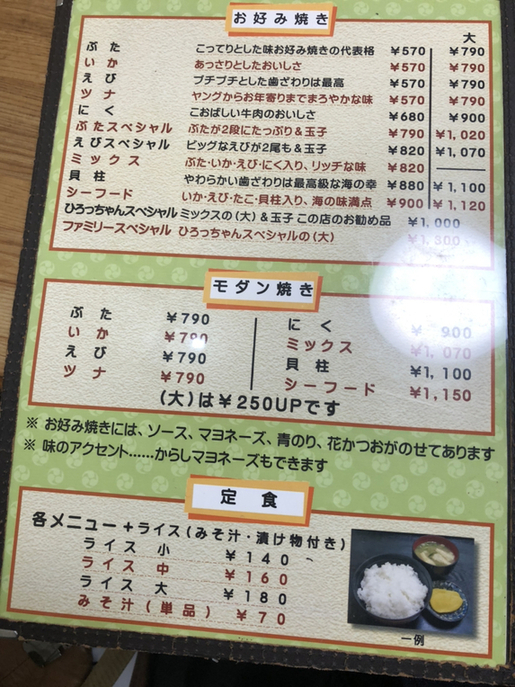 お好み焼き
大
ぶた こってりとした味お好み焼きの代表格 ¥570 ¥790
いか あっさりとしたおいしさ ¥570 ¥790
えび プチプチとした歯ざわりは最高 ¥570 ¥790
ツナ ヤングからお年寄りまでまろやかな味 ¥570 ¥790
にく こおばしい牛肉のおいしさ ¥680 ¥900
ぶたスペシャル ぶたが2段にたっぷり&玉子 ¥790 ¥1,020
えびスペシャル ビッグなえびが2尾も&玉子 ¥820 ¥1,070
ミックス ぶた・いか・えび・にく入り、リッチな味 ¥820
貝柱 やわらかい歯ざわりは最高級な海の幸 ¥880 ¥1,100
シーフード いか・えび・たこ・貝柱入り、海の味満点 ¥900 ¥1,120
ひろっちゃんスペシャル ミックスの(大)&玉子 この店のお勧め品 ¥1,000
ファミリースペシャル ひろっちゃんスペシャルの(大) ¥1,300
モダン焼き
ぶた ¥790 にく ¥900
いか ¥790 ミックス ¥1,070
えび ¥790 貝柱 ¥1,100
ツナ ¥790 シーフード ¥1,150
(大)は¥250UPです
※ お好み焼きには、ソース、マヨネーズ、青のり、花かつおがのせてあります
※ 味のアクセント……からしマヨネーズもできます
定食
各メニュー+ライス(みそ汁・漬け物付き)
ライス 小 ¥140
ライス 中 ¥160
ライス 大 ¥180
みそ汁(単品) ¥70
一例